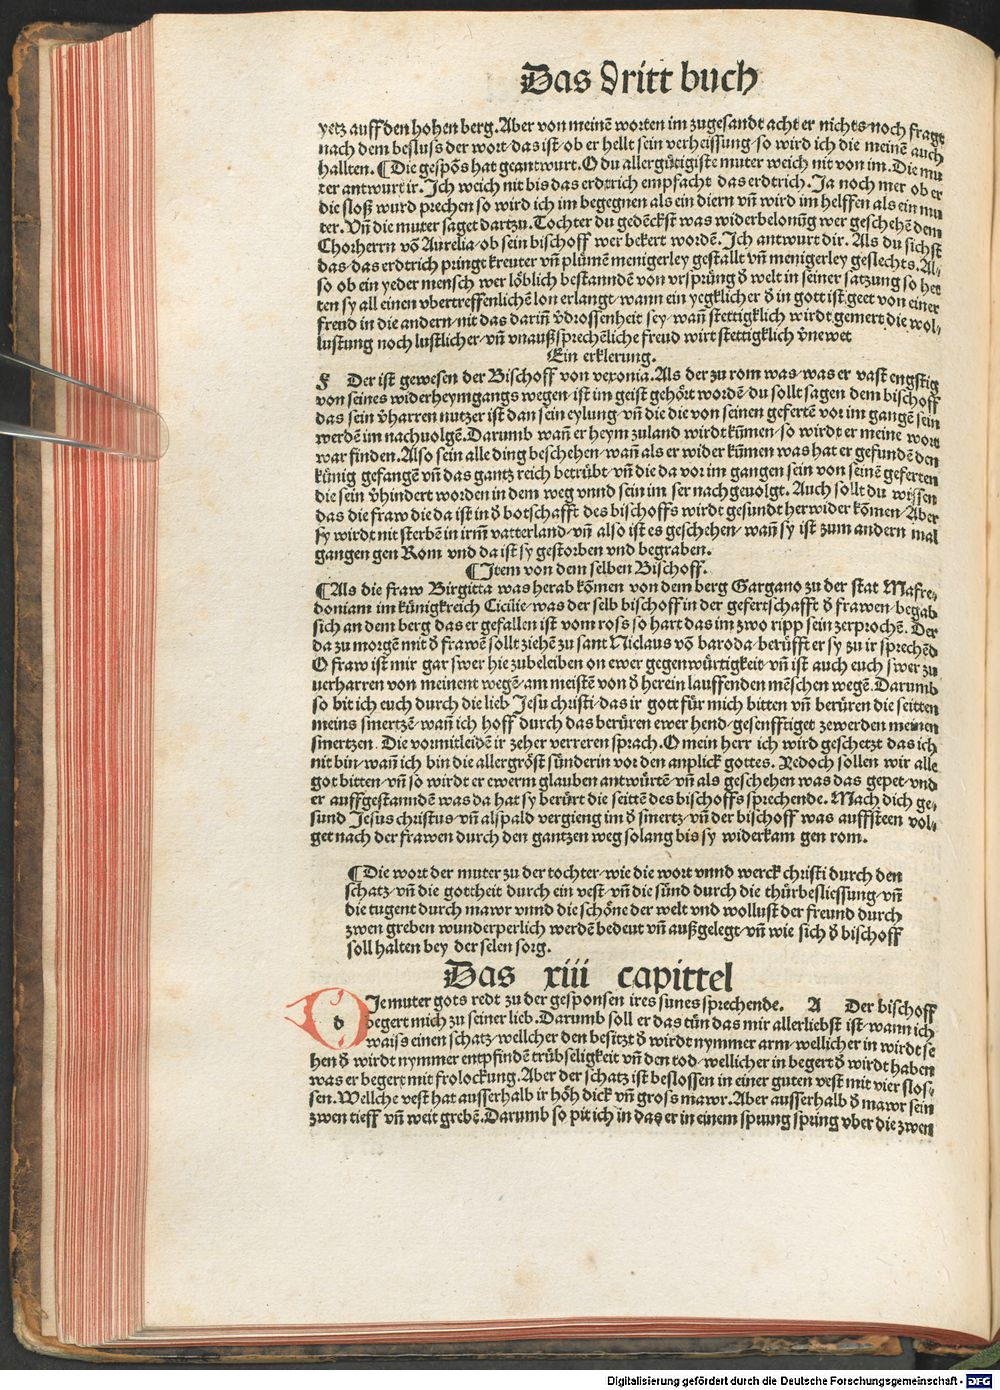 Das dritt buch
yetz auff den hohen berg. Aber von meinē worten im zugesandt acht er nichts noch fragt
nach dem besluss der wort/das ist/ob er hellt sein verheissung/so wird ich die meinē auch
hallten. ¶ Die gespōs hat geantwurt. O du allergütigiste muter weich nit von im. Die mu
ter antwurt ir. Jch weich nit bis das erdtrich empfacht das erdtrich. Ja noch mer ob er
die sloß wurd prechen so wird ich im begegnen als ein diern vn̄ wird im helffen als ein mu
ter. Vn̄ die muter saget dartzu. Tochter du gedēckst was widerbelonūg wer geschehē dem
Chorherrn vō Aurelia/ob sein bischoff wer bekert wordē. Jch antwurt dir. Als du sichst
das/das erdtrich pringt kreuter vn̄ plūmen menigerley gestallt vn̄ menigerley geslechts. Al/
so ob ein yeder mensch wer löblich bestannden von vrsprūng d̄ welt in seiner satzung so het
ten sy all einen vbertreffenlichē lon erlangt/wann ein yegklicher d̄ in gott ist/geet von einer
freud in die andern/nit das darin̄ v̄drossenheit sey/wan̄ stettigklich wirdt gemert die wol/
lustung noch lustlicher/vn̄ vnaußsprechēliche freud wirt stettigklich v̄newet
Ein erklerung.
F Der ist gewesen der Bischoff von vexonia. Als der zu rom was/was er vast engstig
von seines widerheymgangs wegen/ist im geist gehört wordē/du sollt sagen dem bischoff
das sein v̄harren nutzer ist dan sein eylung/vn̄ die die von seinen gefertē vor im gangē sein
werdē im nachuolgē. Darumb wan̄ er heym zuland wirdt kūmen/so wirdt er meine wort
war finden. Also sein alle ding beschehen/wan̄ als er wider kūmen was hat er gefundē den
künig gefangē vn̄ das gantz reich betrübt/vn̄ die da vor im gangen sein von seinē geferten
die sein v̄hindert worden in dem weg vnnd sein im ser nachgeuolgt. Auch sollt du wissen
das die fraw die da ist in d̄ botschafft des bischoffs wirdt gesundt herwider kōmen/Aber
sy wirdt nit sterbē in irm̄ vatterland/vn̄ also ist es geschehen/wan̄ sy ist zum andern mal
gangen gen Rom vnd da ist sy gestorben vnd begraben.
¶ Jtem von dem selben Bischoff.
¶ Als die fraw Birgitta was herab kōmen von dem berg Gargano zu der stat Mafre/
doniam im künigkreich Cicilie/was der selb bischoff in der gefertschafft d̄ frawen/begab
sich an dem berg das er gefallen ist vom ross so hart das im zwo ripp sein zerprochē. Der
da zu morgē mit d̄ frawē sollt ziehē zu sant Niclaus vō baroda/berüfft er sy zu ir sprechēd
O fraw ist mir gar swer hie zubeleiben on ewer gegenwürtigkeit/vn̄ ist auch euch swer zu
uerharren von meinent wegē/am meistē von d̄ herein lauffenden mēschen wegē. Darumb
so bit ich euch durch die lieb Jesu christi/das ir gott für mich bitten vn̄ berüren die seitten
meins smertzē/wan̄ ich hoff durch das berüren ewer hend/gesenfftiget zewerden meinen
smertzen. Die vormitleidē ir zeher verreren sprach. O mein herr ich wird geschetzt das ich
nit bin/wan̄ ich bin die allergröst sünderin vor den anplick gottes. Yedoch sollen wir alle
got bitten/vn̄ so wirdt er ewerm glauben antwürtē/vn̄ als geschehen was das gepet/vnd
er auffgestanndē was da hat sy berürt die seittē des bischoffs sprechende. Mach dich ge/
sund Jesus christus/vn̄ alspald vergieng im d̄ smertz/vn̄ der bischoff was auffsteen vol/
get nach der frawen durch den gantzen weg solang bis sy widerkam gen rom.
¶ Die wort der muter zu der tochter/wie die wort vnnd werck christi durch den
schatz/vn̄ die gottheit durch ein vest/vn̄ die sünd durch die thürbesliessung/vn̄
die tugent durch mawr vnnd die schöne der welt vnd wollust der freund durch
zwen greben wunderperlich werdē bedeut vn̄ außgelegt/vn̄ wie sich d̄ bischoff
soll halten bey der selen sorg.
Das xiii capittel
Die muter gots redt zu der gesponsen ires sunes sprechende. A Der bischoff
begert mich zu seiner lieb. Darumb soll er das tūn das mir allerliebst ist/wann ich
waiss einen schatz/wellcher den besitzt d̄ wirdt nymmer arm/wellicher in wirdt se
hen d̄ wirdt nymmer entpfindē trübseligkeit vn̄ den tod/wellicher in begert d̄ wirdt haben
was er begert mit frolockung. Aber der schatz ist beslossen in einer guten vest mit vier slos/
sen. Wellche vest hat ausserhalb ir höh dick vn̄ gross mawr. Aber ausserhalb d̄ mawr sein
zwen tieff vn̄ weit grebē. Darumb so pit ich in das er in einem sprung spring vber die zwen
Digitalisierung gefördert durch die Deutsche Forschungsgemeinschaft - DFG